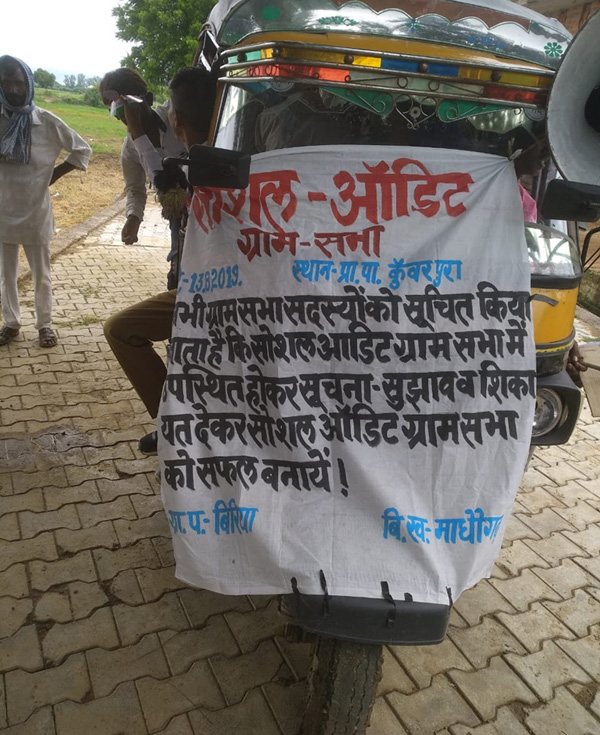 सोशल - ऑडिट
ग्राम-सभा
-13.8.2019. स्थान-प्रा.पा. कुॅवरपुरा
भी ग्राम सभा सदस्यों को सूचित किया
जाता है कि सोशल आडिट ग्राम सभा में
उपस्थित होकर सूचना-सुझाव व शिका
यत देकर सोशल ऑडिट ग्राम सभा
को सफल बनायें !
ग्रा.प.:- बिरिया वि.ख:- माधौग